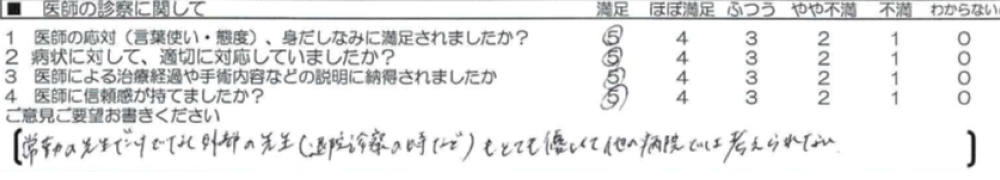 ■ 医師の診察に関して 満足 ほぼ満足 ふつう やや不満 不満 わからない
1 医師の応対（言葉使い・態度）、身だしなみに満足されましたか？ 5 4 3 2 1 0
2 病状に対して、適切に対応していましたか？ 5 4 3 2 1 0
3 医師による治療経過や手術内容などの説明に納得されましたか 5 4 3 2 1 0
4 医師に信頼感が持てましたか？ 5 4 3 2 1 0
ご意見ご要望お書きください
常勤の先生だけでなく外部の先生（退院診察の時など）もとても優しくて他の病院では考えられない